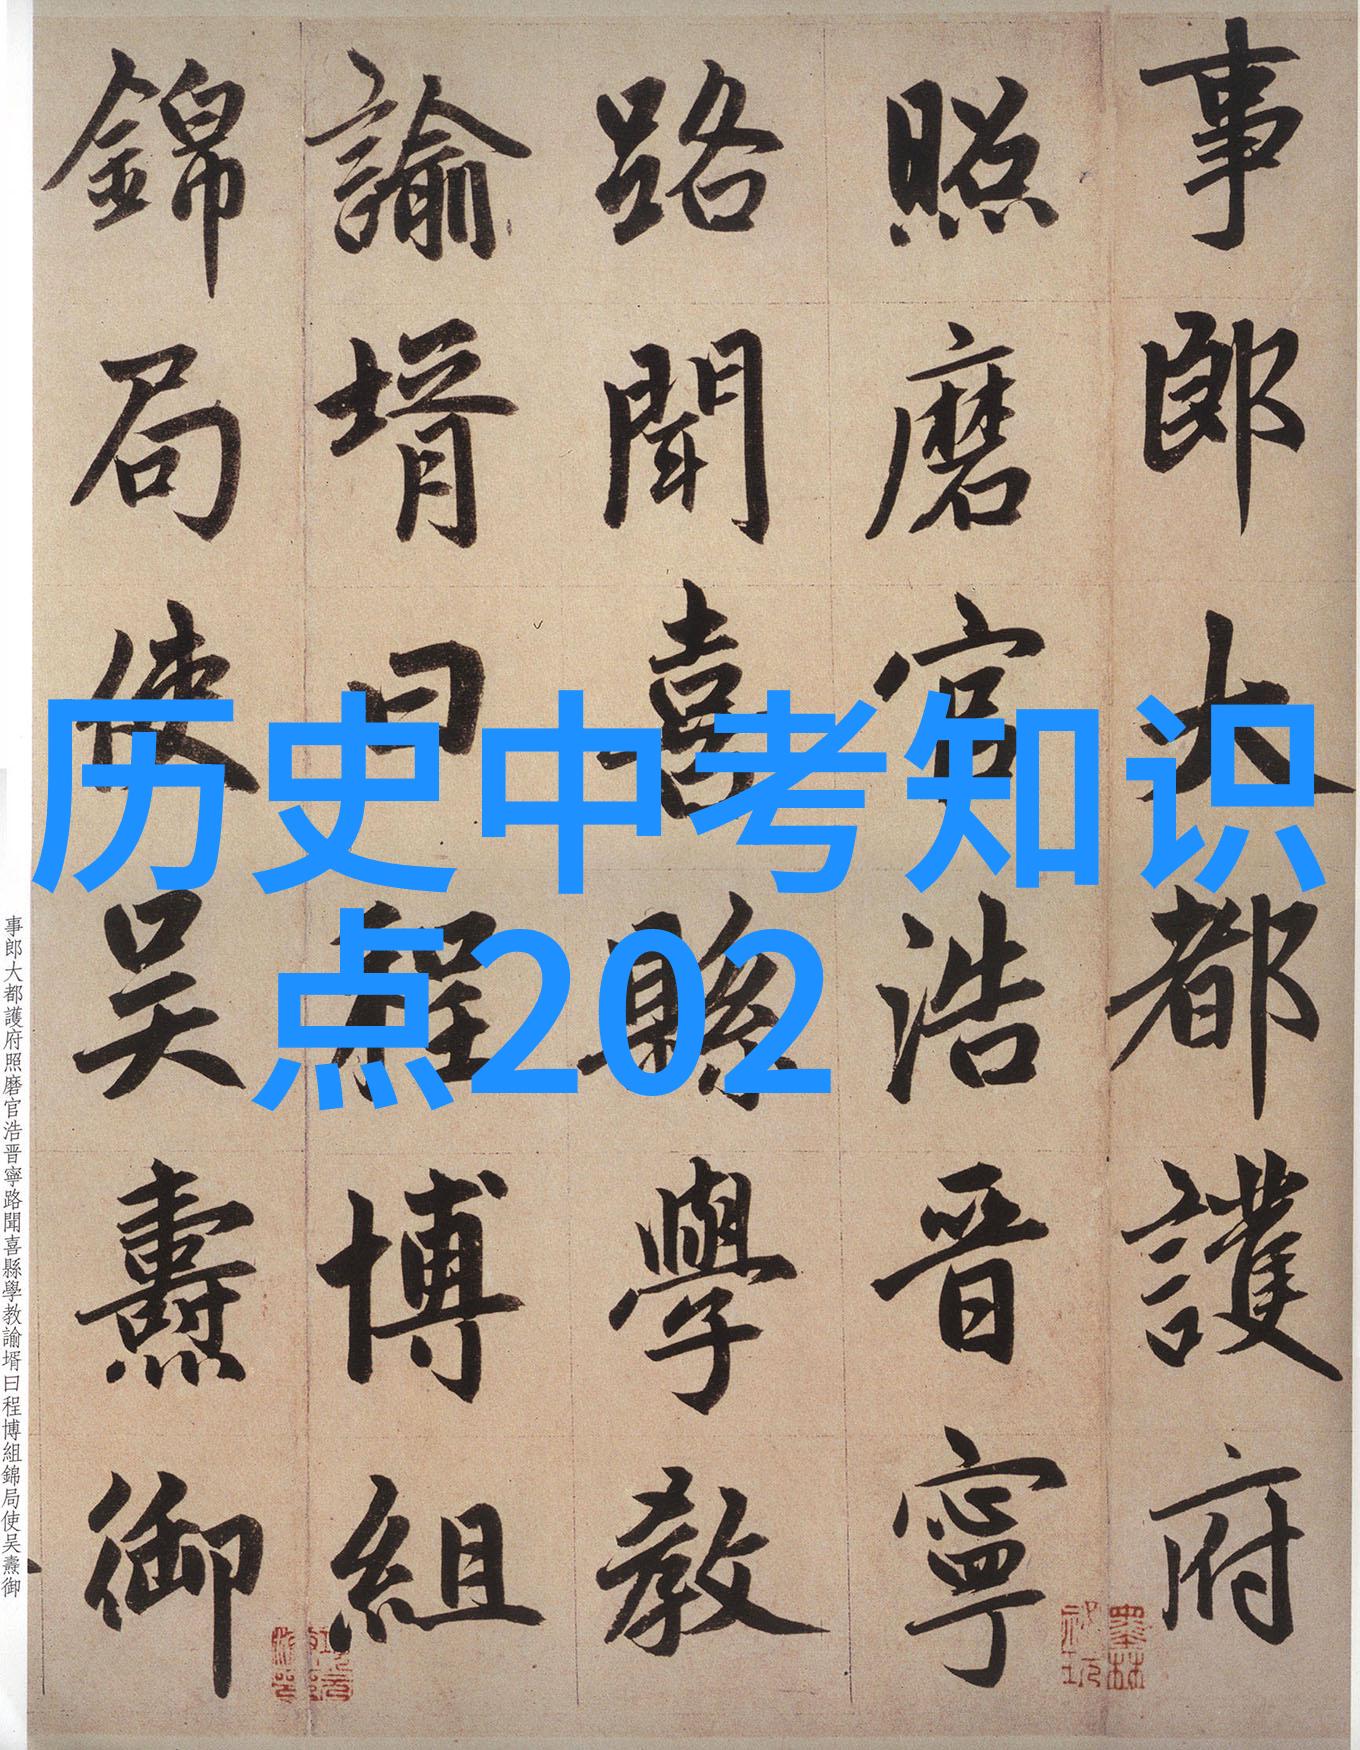 事郎大都護府
照磨官浩晋寧
路聞喜縣學教
諭壻曰程博組
錦局使吴燾御
历史中考知识
点202
事郎大都護府照磨官浩晋寧路聞喜縣學教諭壻曰程博組錦局使吴燾御